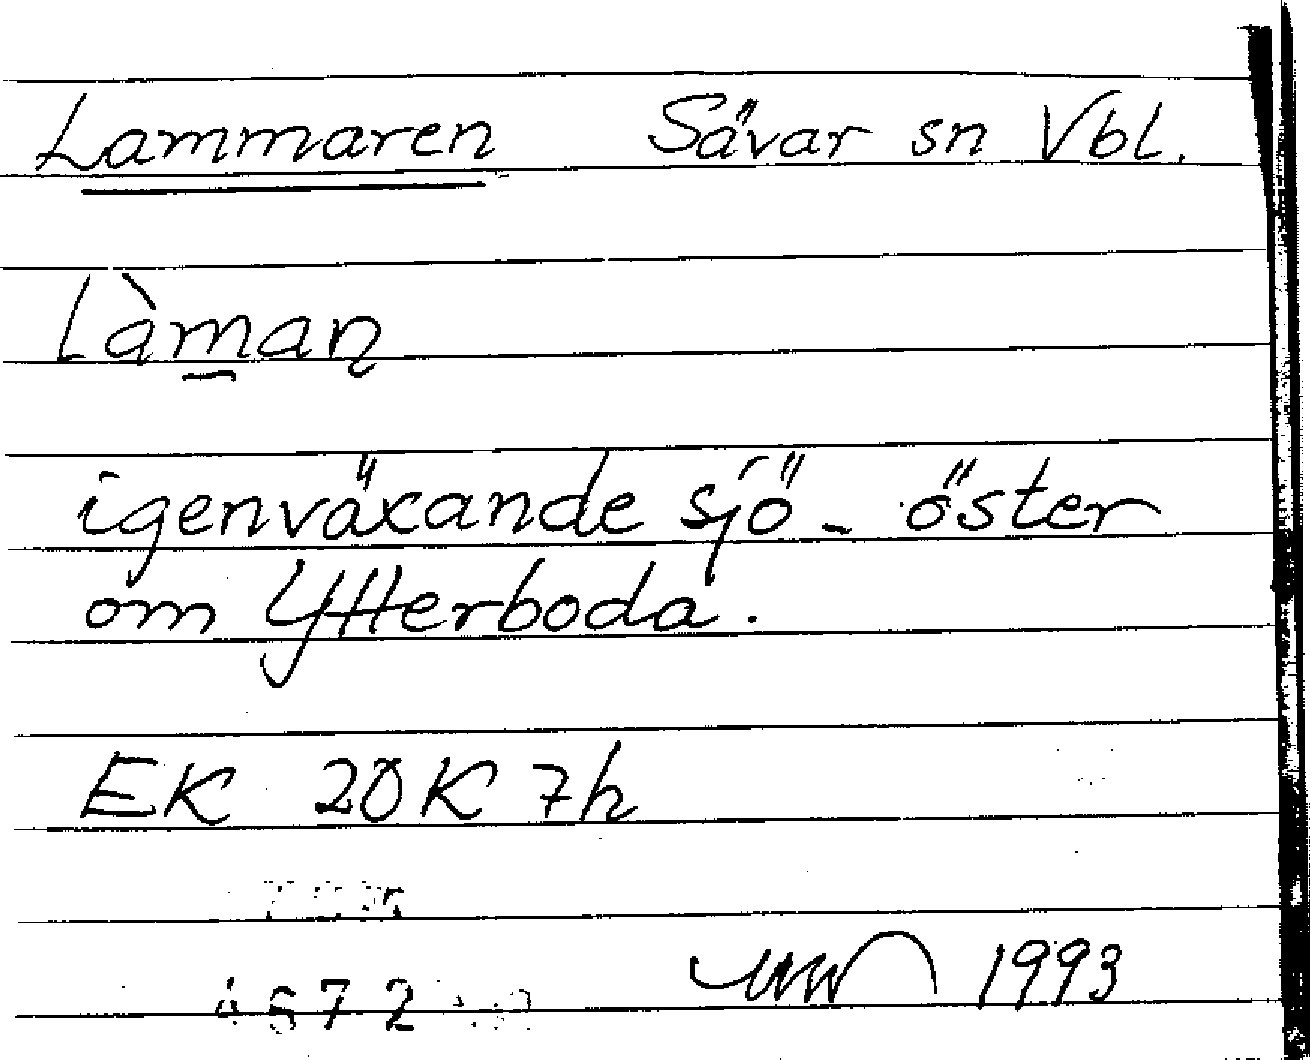 Lammaren Sävar sn Vbl.
Làmaṇ
igenväxande sjö - öster
om Ytterboda.
EK 20K 7h
1993